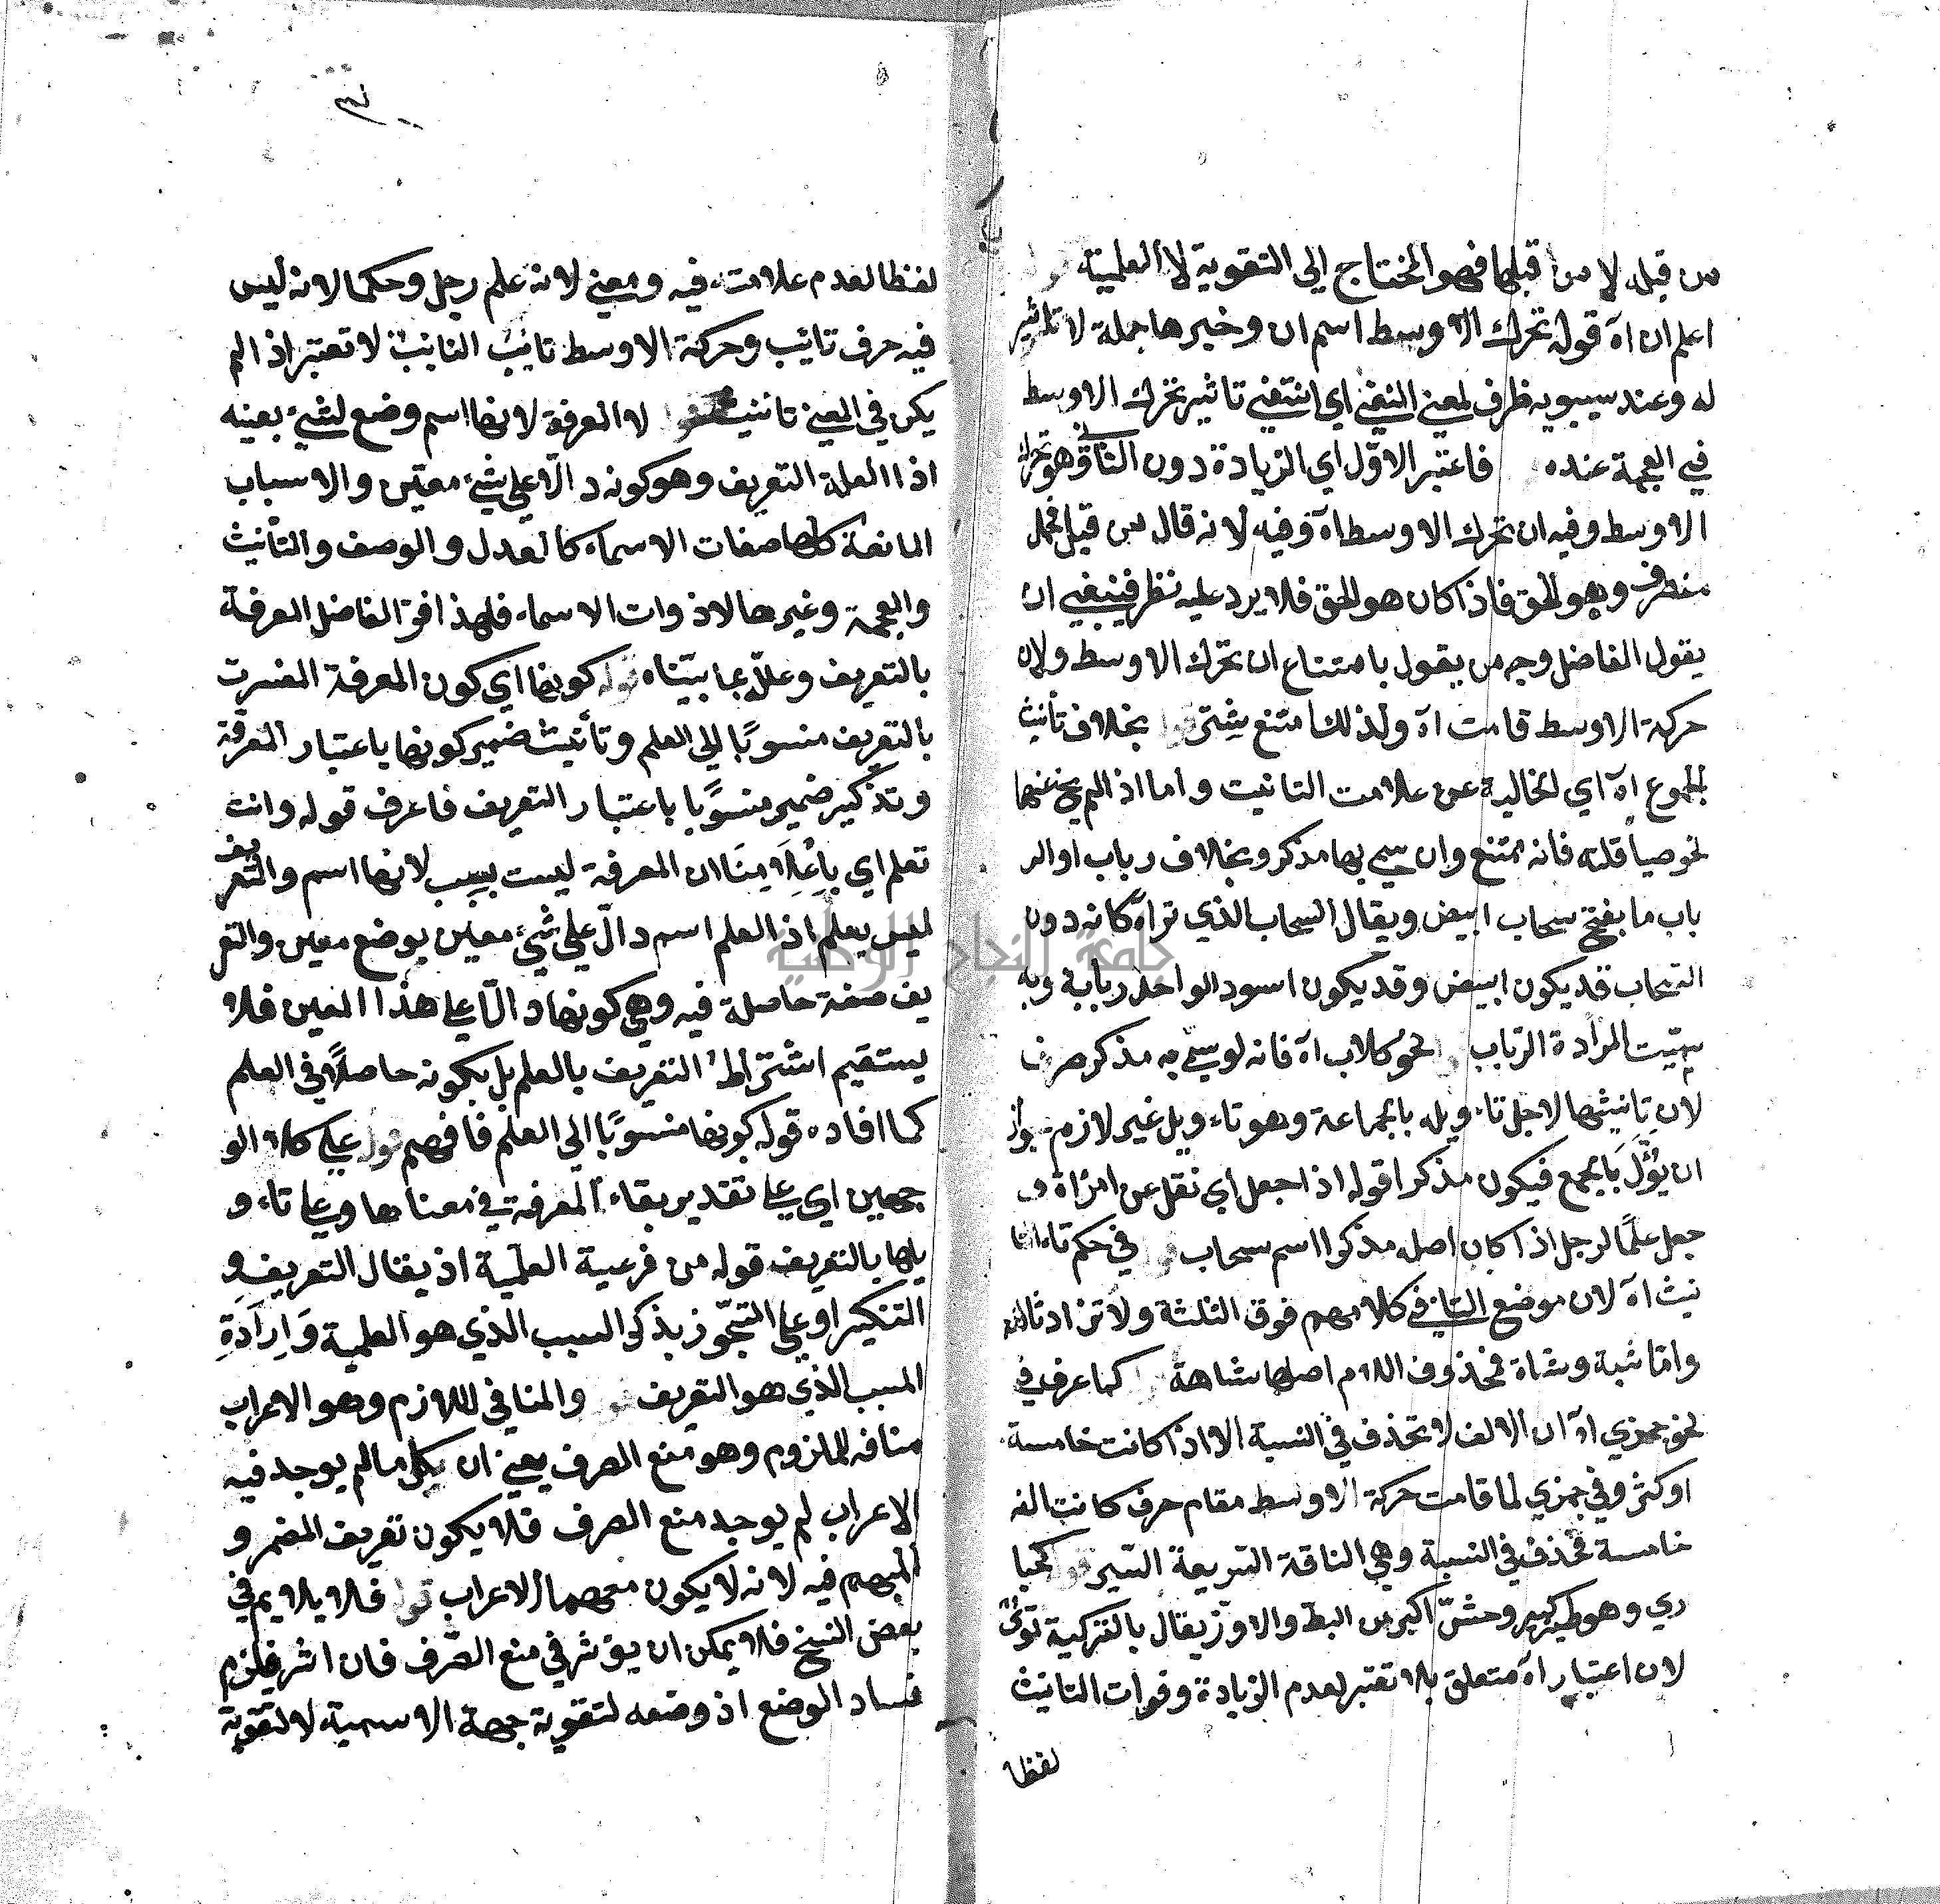 من قبله لا من قبلها فهو المحتاج الى التقوية لا العلمية قوله
اعلم ان اه قوله تحرك الاوسط اسم ان وخبرها جملة لا تاثير
له وعند سيبويه ظرف لمعنى النفي اي انتفى تاثير تحرك الاوسط
في العجمة عنده فاعتبر الاول اي الزيادة دون الثاني وهو تحرك
الاوسط وفيه ان تحرك الاوسط اه وفيه لانه قال من قبل فجعل
منطرف وهو الحق فاذا كان هو الحق فلا يرد عليه نظر فينبغي ان
يقول الفاضل وجه من يقول بامتناع ان تحرك الاوسط ولان
حركة الاوسط قامت اه ولذلك امتنع شتر قوله بخلاف تأنيث
الجموع اه اي الخالية عن علامت التانيث واما اذا لم يخ عنها
نحو صياقلته فانه ممتنع وان سمي بها مذكر وبخلاف رباب اوالر
باب ما بفتح سحاب ابيض ويقال السحاب الذي تراه كانه دون
السحاب قد يكون ابيض وقد يكون اسود الواحد ربابة وبه
سميت المرأدة الرباب نحو كلاب اه فانه لو سمي به مذكر صرف
لان تانيثها لاجل تاء ويله بالجماعة وهو تاء ويل غير لازم جواز
ان يؤل بالجمع فيكون مذكرا قوله اذا جعل اي نقل عن امراة و
جعل علما لرجل اذا كان اصله مذكرا اسم سحاب قوله في حكم تاء التا
نيث اه لان موضع التاء في كلامهم فوق الثلثة ولا تزاد ثالثة
واما ثبة وشاة فمحذوف اللام اصلها شاهة كما عرف في
نحو جمزي اه ان الالف لا تحذف في النسبة الا اذا كانت خامسة
او كثر وفي جمزي لما قامت حركة الاوسط مقام حرف كانت الفه
خامسة فحذف في النسبة وهي الناقة السريعة السير قوله كحبا
ري وهو طير كبير وحشي اكبر من البط والاوز يقال بالتركية توى
لان اعتبار اه متعلق بلا تعتبر لعدم الزيادة وفوات التانيث
لفظا
لفظا لعدم علامت فيه ومعنى لانه علم رجل وحكما لانه ليس
فيه حرف تانيث وحركة الاوسط تانيث التانيث لا تعتبر اذا لم
يكن في المعنى تانيث قوله لا المعرفة لانها اسم وضع لشئ بعينه
اذا العلة التعريف وهو كونه دالا على شئ معين والاسباب
المانعة كلها صفات الاسماء كالعدل والوصف والتأنيث
والعجمة وغيرها لا ذوات الاسماء فلهذا افو الفاضل المعرفة
بالتعريف وعلله بما بيناه قوله كونها اي كون المعرفة الفسرت
بالتعريف منسوبا الى العلم وتأنيث ضمير كونها باعتبار المعرفة
وتذكير ضمير منسوبا باعتبار التعريف فاعرف قوله وانت
تعلم اي باعلامنا ان المعرفة ليست بسبب لانها اسم والتعريف
ليس بعلم اذ العلم اسم دال على شئ معين بوضع معين والتعر
يف صفة حاصلة فيه وهي كونها دالا على هذا المعين فلا
يستقيم اشتراط التعريف بالعلم بل بكونه حاصلا في العلم
كما افاده قوله كونها منسوبا الى العلم فافهم قوله على كلا الو
جهين اي على تقدير بقاء المعرفة في معناها وعلى تاء و
يلها بالتعريف قوله من فرعية العلمية اذ يقال التعريف و
التنكير او على التجوز بذكر السبب الذي هو العلمية وارادة
المسبب الذي هو التعريف والمنافي للازم وهو الاعراب
مناف للملزوم وهو منع الصرف يعني ان كل ما لم يوجد فيه
الاعراب لم يوجد منع الصرف فلا يكون تعريف المضمر و
المبهم فيه لانه لا يكون معهما الاعراب قوله فلا يلايم في
بعض النسخ فلا يمكن ان يؤثر في منع الصرف فان اثر فيلزم
فساد الوضع اذ وضعه لتقوية جهة الاسمية لا لتقوية
جامعة النجاح الوطنية